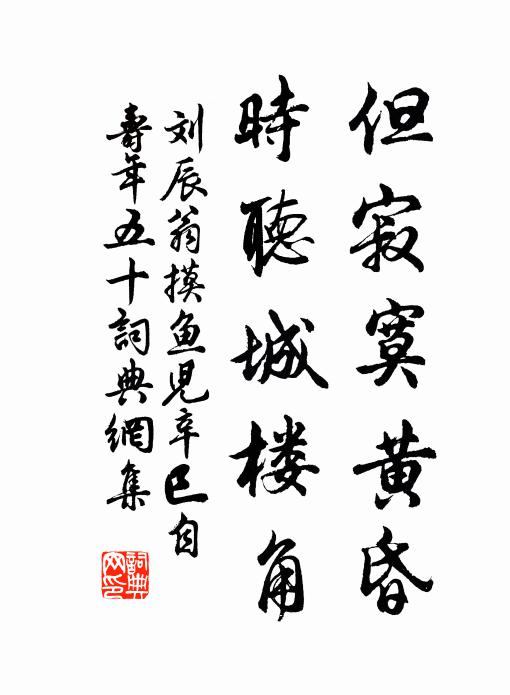 但寂寞黄昏
時聽城楼角
刘辰翁摸鱼児辛巳自
壽年五十詞典網集
詞典
网印